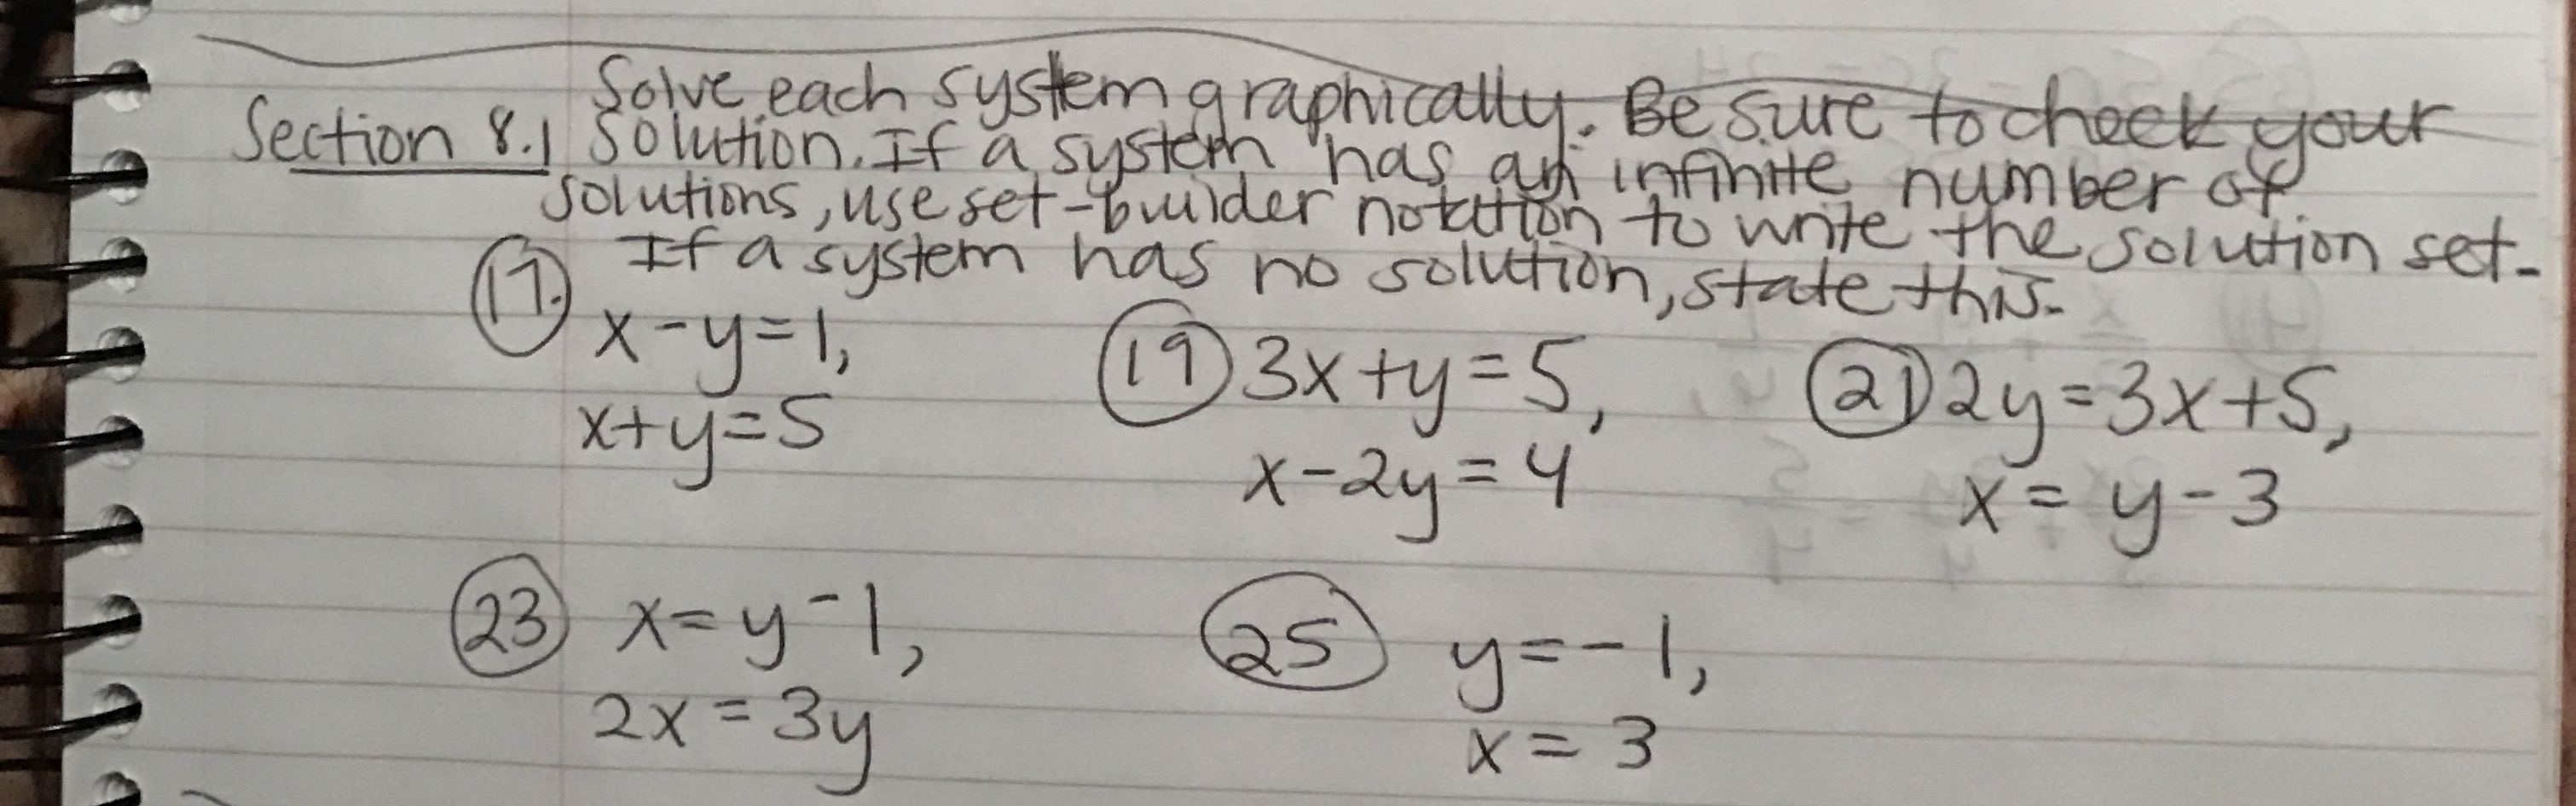 Solve each system graphically. Be sure to check your
Section 8.1 Solution. If a system has an infinite number of
solutions, use set-builder notation to write the solution set.
If a system has no solution, state this.
17. x-y=1,
x+y=5
19 3x+y=5,
x-2y=4
21 2y=3x+5,
x=y-3
23 x=y-1,
2x=3y
25 y=-1,
x=3